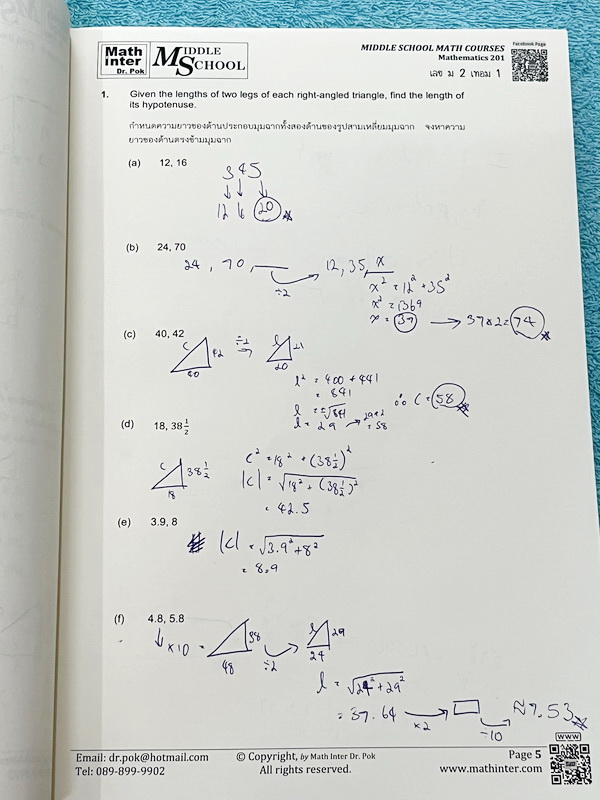 Math Inter Dr. Pok
MIDDLE SCHOOL
MIDDLE SCHOOL MATH COURSES
Mathematics 201
Facebook Page
เลข ม 2 เทอม 1
1. Given the lengths of two legs of each right-angled triangle, find the length of
its hypotenuse.
กำหนดความยาวของด้านประกอบมุมฉากทั้งสองด้านของรูปสามเหลี่ยมมุมฉาก จงหาความ
ยาวของด้านตรงข้ามมุมฉาก
(a) 12, 16
3 4 5
↓ ↓ ↓
12 16 20
(b) 24, 70
24 , 70 , ___ ÷2 12, 35, x
x² = 12² + 35²
x² = 1369
x = 37 → 37×2 = 74
(c) 40, 42
c 42 40 ÷2 → l 21 20
l² = 400 + 441
= 841
l = ±√841
l = 29 → 29×2 = 58
∴ c = 58
(d) 18, 38½
c 38½ 18
c² = 18² + (38½)²
|c| = √18² + (38½)²
= 42.5
(e) 3.9, 8
|c| = √3.9² + 8²
= 8.9
(f) 4.8, 5.8
↓ ×10 = 58 48 ÷2 → l 29 24
l = √24² + 29²
= 37.64 → ×2 □ ÷10 → ≈7.53
Email: dr.pok@hotmail.com
Tel: 089-899-9902
© Copyright, by Math Inter Dr. Pok
All rights reserved.
Page 5
www.mathinter.com
WWW